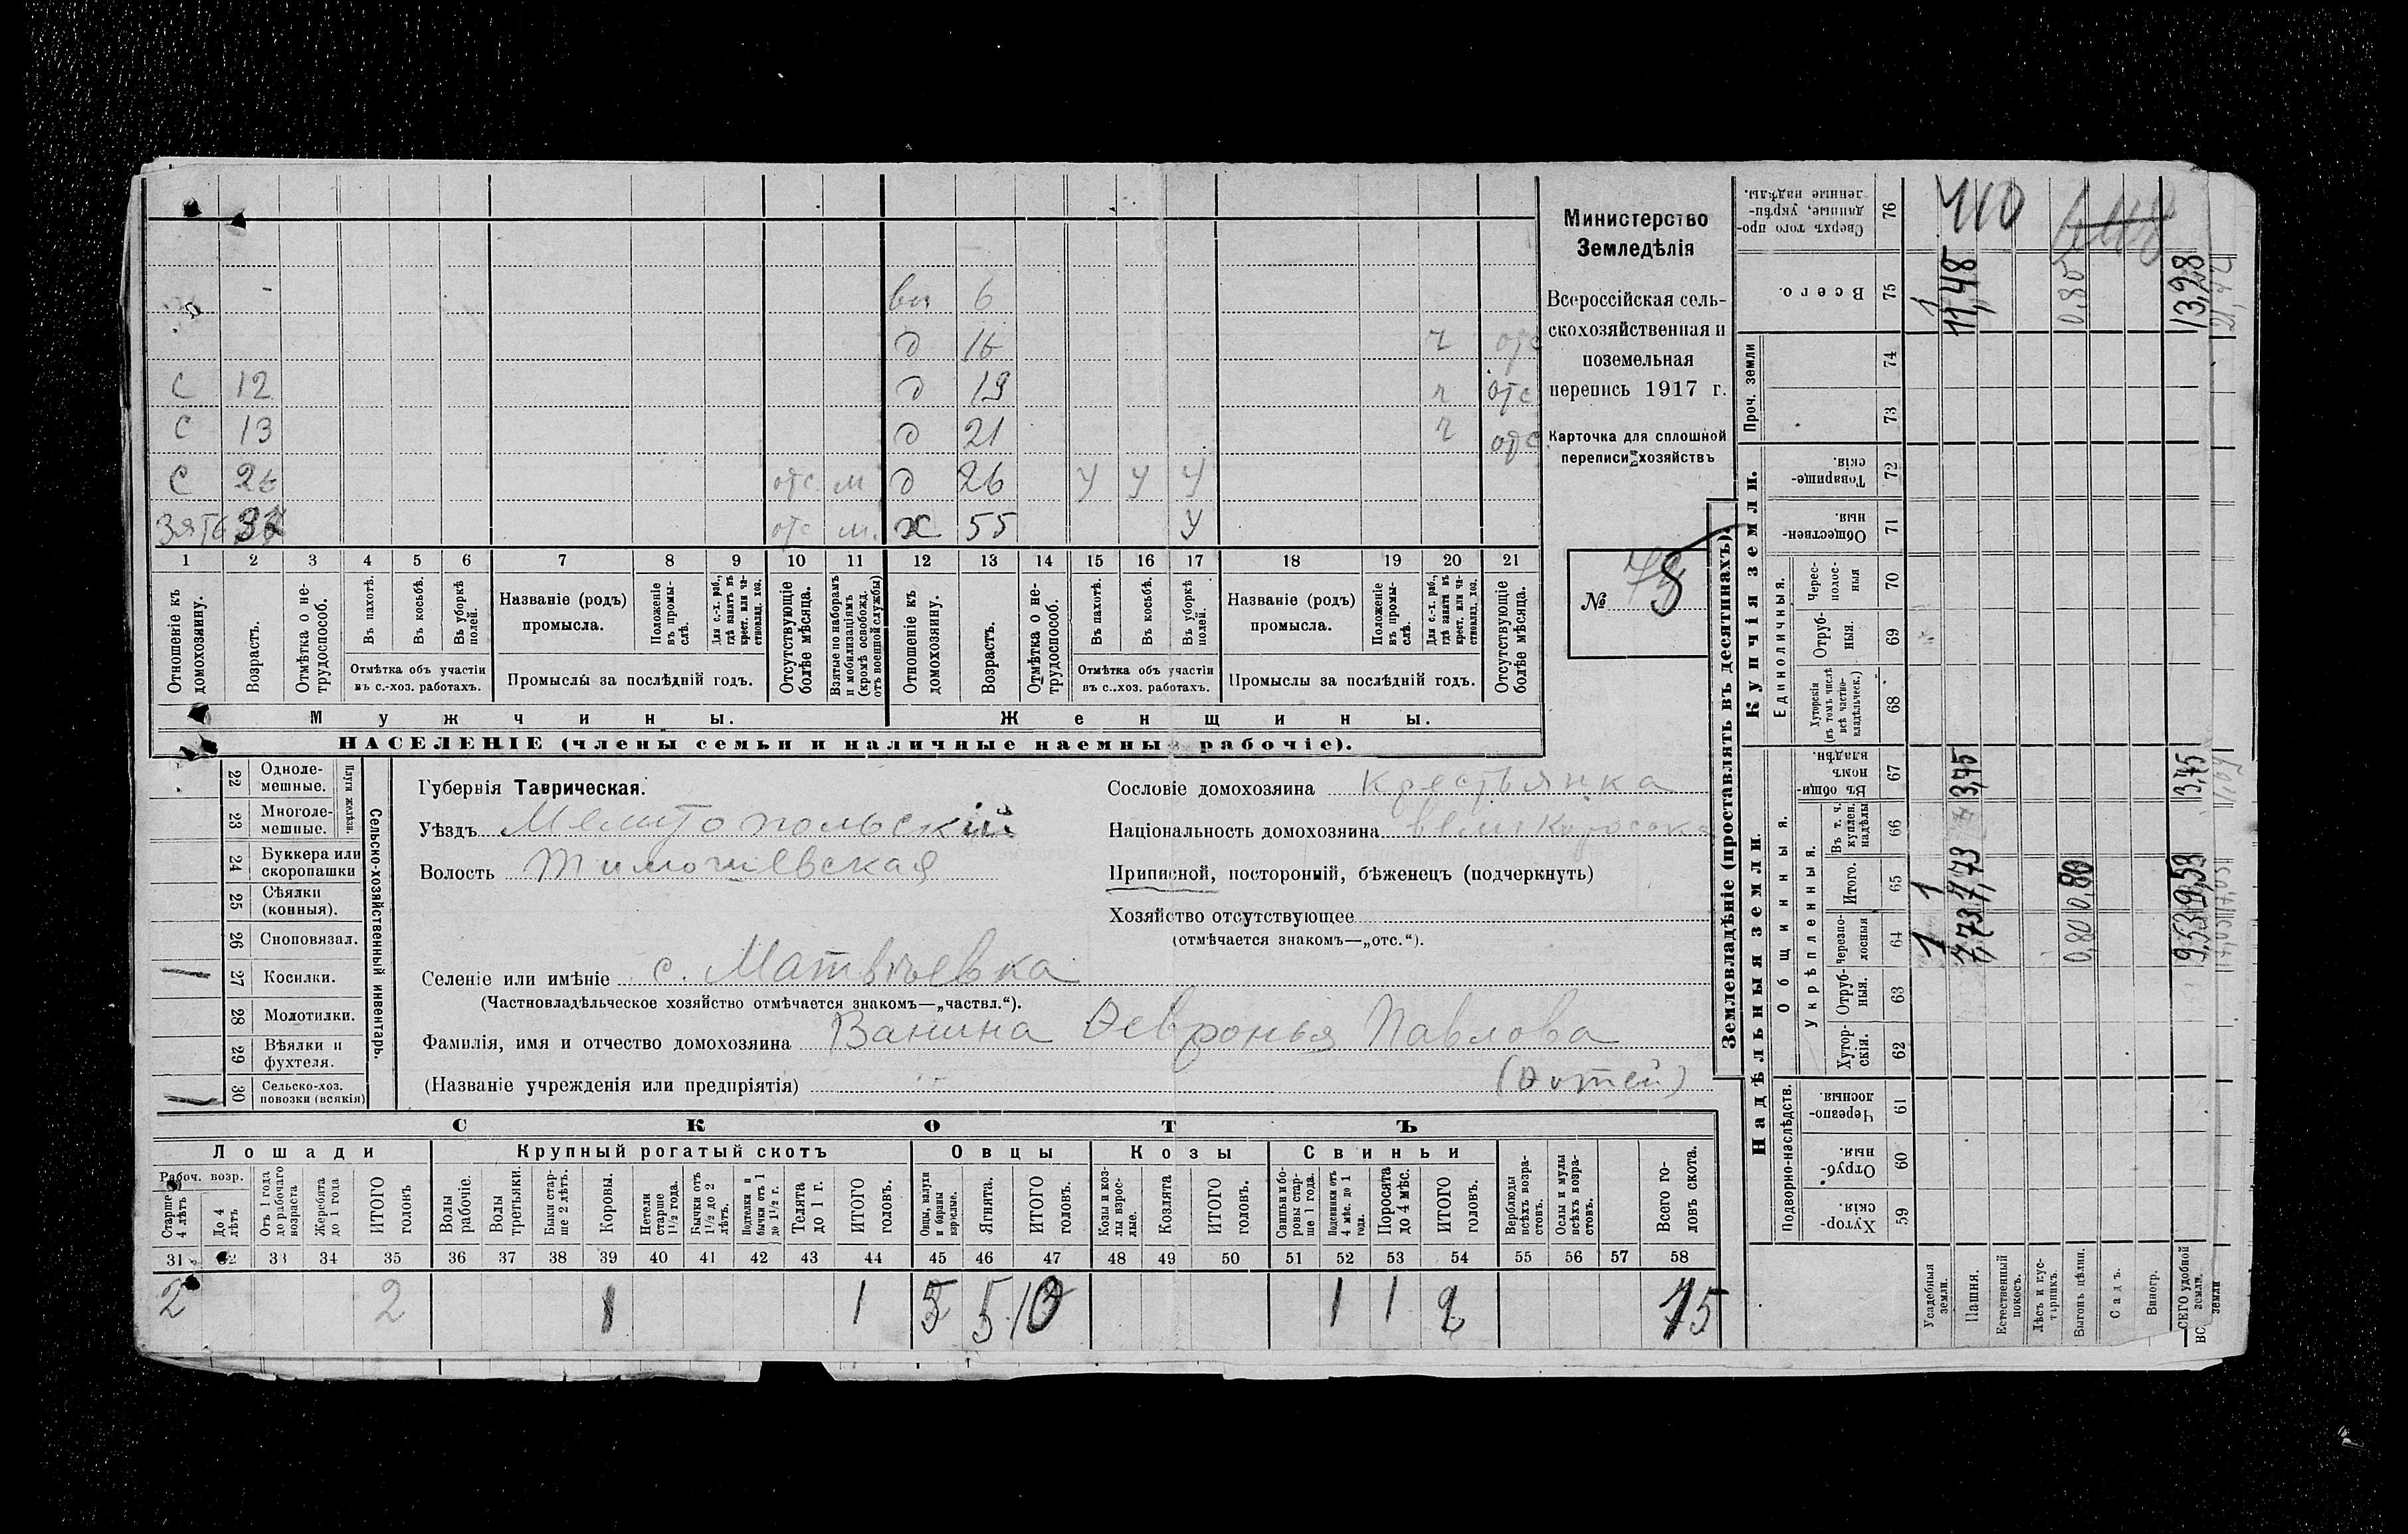 вн 6
д 16 ч отс
С 12 д 19 ч отс
С 13 д 21 ч отс
С 26 отс м д 26 у у у
Зять отс м. ж 55 у
1 2 3 4 5 6 7 8 9 10 11 12 13 14 15 16 17 18 19 20 21
Отношеніе къ домохозяину.
Возрастъ.
Отмѣтка о нетрудоспособ.
Въ пахотѣ.
Въ косьбѣ.
Въ уборкѣ полей.
Отмѣтка объ участіи
въ с.-хоз. работахъ.
Названіе (родъ)
промысла.
Положеніе въ промыслѣ.
Для с.-х. раб., гдѣ занятъ въ крест. или частновлад. хоз.
Промыслы за послѣдній годъ.
Отсутствующіе болѣе мѣсяца.
Взятые по наборамъ и мобилизаціямъ (кромѣ освобожд. отъ военной службы)
Отношеніе къ домохозяину.
Возрастъ.
Отмѣтка о нетрудоспособ.
Въ пахотѣ.
Въ косьбѣ.
Въ уборкѣ полей.
Отмѣтка объ участіи
въ с..хоз. работахъ.
Названіе (родъ)
промысла.
Положеніе въ промыслѣ.
Для с.-х. раб., гдѣ занята въ крест. или частновлад. хоз.
Промыслы за послѣдній годъ.
Отсутствующіе болѣе мѣсяца.
Мужчины.
Женщины.
НАСЕЛЕНІЕ (члены семьи и наличные наемные рабочіе).
Министерство
Земледѣлія
Всероссійская сель-
скохозяйственная и
поземельная
перепись 1917 г.
Карточка для сплошной
переписи хозяйствъ
№ 8
22 Одноле-
мешные.
23 Многоле-
мешные.
Плуги желѣзн.
24 Буккера или
скоропашки
25 Сѣялки
(конныя).
26 Сноповязал.
27 Косилки.
28 Молотилки.
29 Вѣялки и
фухтеля.
30 Сельско-хоз.
повозки (всякія)
Сельско-хозяйственный инвентарь.
Губернія Таврическая.
Уѣздъ Мелитопольскій
Волость Тимошевская
Селеніе или имѣніе с. Матвѣевка
(Частновладѣльческое хозяйство отмѣчается знакомъ—„частвл.“).
Фамилія, имя и отчество домохозяина Ванина Февронья Павлова
(Названіе учрежденія или предпріятія)
Сословіе домохозяина крестьянка
Національность домохозяина великоросска
Приписной, посторонній, бѣженецъ (подчеркнуть)
Хозяйство отсутствующее
(отмѣчается знакомъ—„отс.“).
СКОТЪ
Лошади Крупный рогатый скотъ Овцы Козы Свиньи
Рабоч. возр.
Старше 4 лѣтъ
До 4 лѣтъ
Отъ 1 года до рабочаго возраста
Жеребята до 1 года
ИТОГО головъ
Волы рабочіе.
Волы третьяки.
Быки старше 2 лѣтъ.
Коровы.
Нетели старше 1½ года.
Бычки отъ 1½ до 2 лѣтъ.
Подтелки и бычки отъ 1 до 1½ г.
Телята до 1 г.
ИТОГО головъ.
Овцы, валухи и бараны взрослые.
Ягнята.
ИТОГО головъ.
Козы и козлы взрослые.
Козлята
ИТОГО головъ.
Свиньи и боровы старше 1 года.
Подсвинки отъ 4 мѣс. до 1 года.
Поросята до 4 мѣс.
ИТОГО головъ.
Верблюды всѣхъ возрастовъ.
Ослы и мулы всѣхъ возрастовъ.
Всего головъ скота.
31 32 33 34 35 36 37 38 39 40 41 42 43 44 45 46 47 48 49 50 51 52 53 54 55 56 57 58
2 2 1 1 5 5 10 1 1 2 15
Землевладѣніе (проставлять въ десятинахъ)
Купчія земли.
Надѣльныя земли.
Сверхъ того проданные, укрѣпленные надѣлы. 76
Всего. 75 1 11,48 0,80 13,28
Проч. земли
74
73
Товарищескія. 72
Общественныя. 71
Единоличныя.
Чересполосныя 70
Отрубныя. 69
Хуторскія (въ томъ числѣ всѣ частновладѣльческ.) 68
Общинныя.
Въ общинномъ владѣн. 67 3,75 3,75
Укрѣпленныя.
Въ т. ч. куплен. надѣлы 66
Итого. 65 1 7,73 0,80 9,53
Черезполосныя 64 1 7,73 0,80 9,53
Отрубныя. 63
Хуторскія. 62
Подворно-наслѣдств.
Черезполосныя 61
Отрубныя. 60
Хуторскія. 59
Усадебныя земли.
Пашня.
Естественный покосъ.
Лѣсъ и кустарникъ.
Выгонъ цѣлин.
Садъ.
Виногр.
ВСЕГО удобной земли.